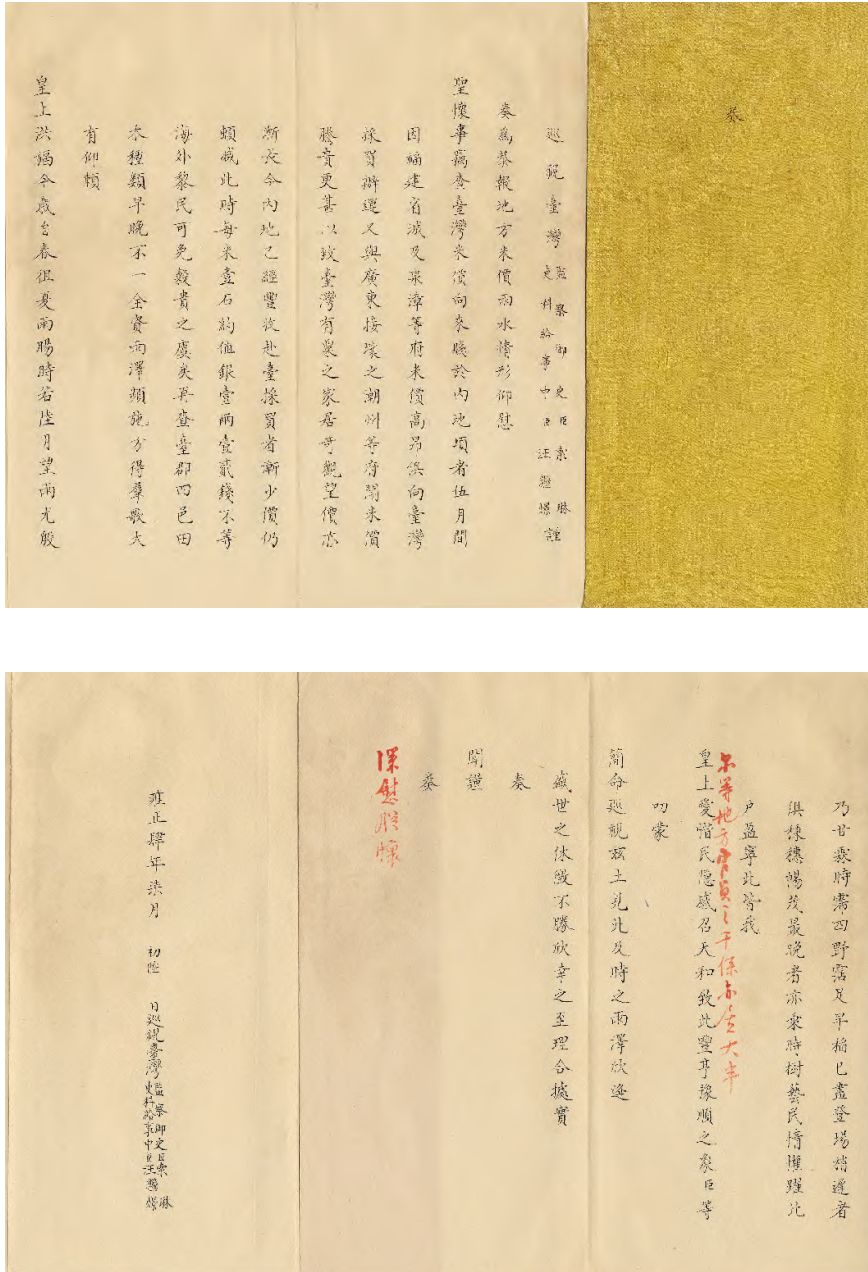 奏
巡視臺灣監察御史臣索琳
吏科給事中臣汪繼燝謹
奏為恭報地方米價雨水情形仰慰
聖懷事竊查臺灣米價向來賤於內地頃者伍月間
因福建省城及泉漳等府米價高昂俱向臺灣
採買搬運又與廣東接壤之潮州等府閩米價
騰貴更甚以致臺灣有粟之家居奇觀望價亦
漸長今內地已經豐收赴臺採買者漸少價仍
頓減此時每米壹石約值銀壹兩壹貳錢不等
海外黎民可免穀貴之虞矣再查臺郡四邑田
禾種類早晚不一全資雨澤頻施方得羣歌大
有仰賴
皇上洪福今歲自春徂夏雨暘時若陸月望雨尤殷
乃甘霖時霈四野霑足早稻已盡登場稍遲者
俱棟穗暢茂最晚者亦乘時樹藝民情懽躍比
戶盈寧此皆我
爾等地方官員之干係亦居大半
皇上愛惜民隱感召天和致此豐亨豫順之象臣等
叨蒙
簡命巡視茲土見此及時之雨澤欣逢
盛世之休徵不勝欣幸之至理合據實
奏
聞謹
奏
深慰朕懷
雍正肆年柒月 初陸 日巡視臺灣監察御史臣索琳
吏科給事中臣汪繼燝